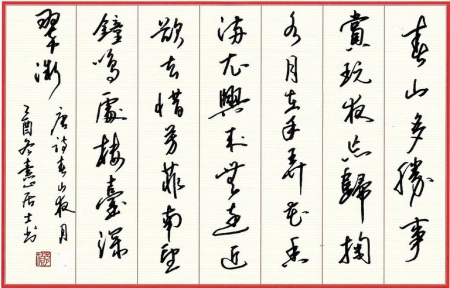 春山多勝事
賞玩夜忘歸掬
水月在手弄花香
滿衣興來無遠近
欲去惜芳菲南望
鐘鳴處樓臺深
翠微
唐詩春山夜月
乙酉冬憲居士书